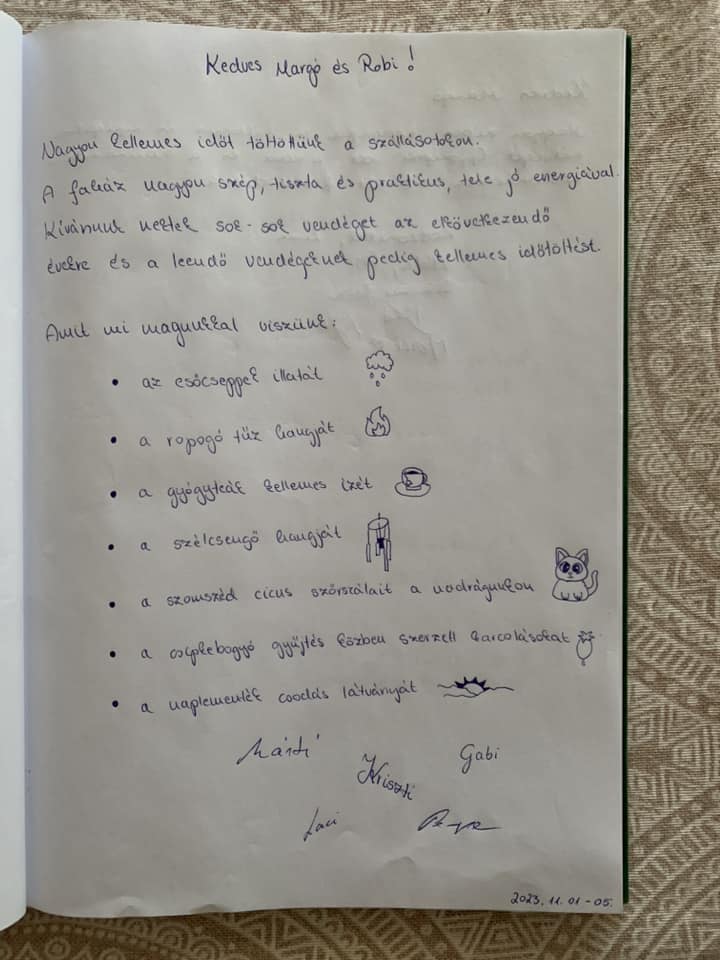 Kedves Margó és Robi!
Nagyon kellemes időt töltöttünk a szállásotokon.
A faház nagyon szép, tiszta és praktikus, tele jó energiával.
Kívánunk nektek sok-sok vendéget az elkövetkezendő
évekre és a leendő vendégeknek pedig kellemes időtöltést.
Amit mi magunkkal viszünk:
• az esőcseppek illatát
• a ropogó tűz hangját
• a gyógyteák kellemes ízét
• a szélcsengő hangját
• a szomszéd cicus szőrszálait a nadrágunkon
• a csipkebogyó gyűjtés közben szerzett karcolásokat
• a naplementék csodás látványát
Márti
Kriszti
Gabi
Laci
2023. 11. 01 - 05.